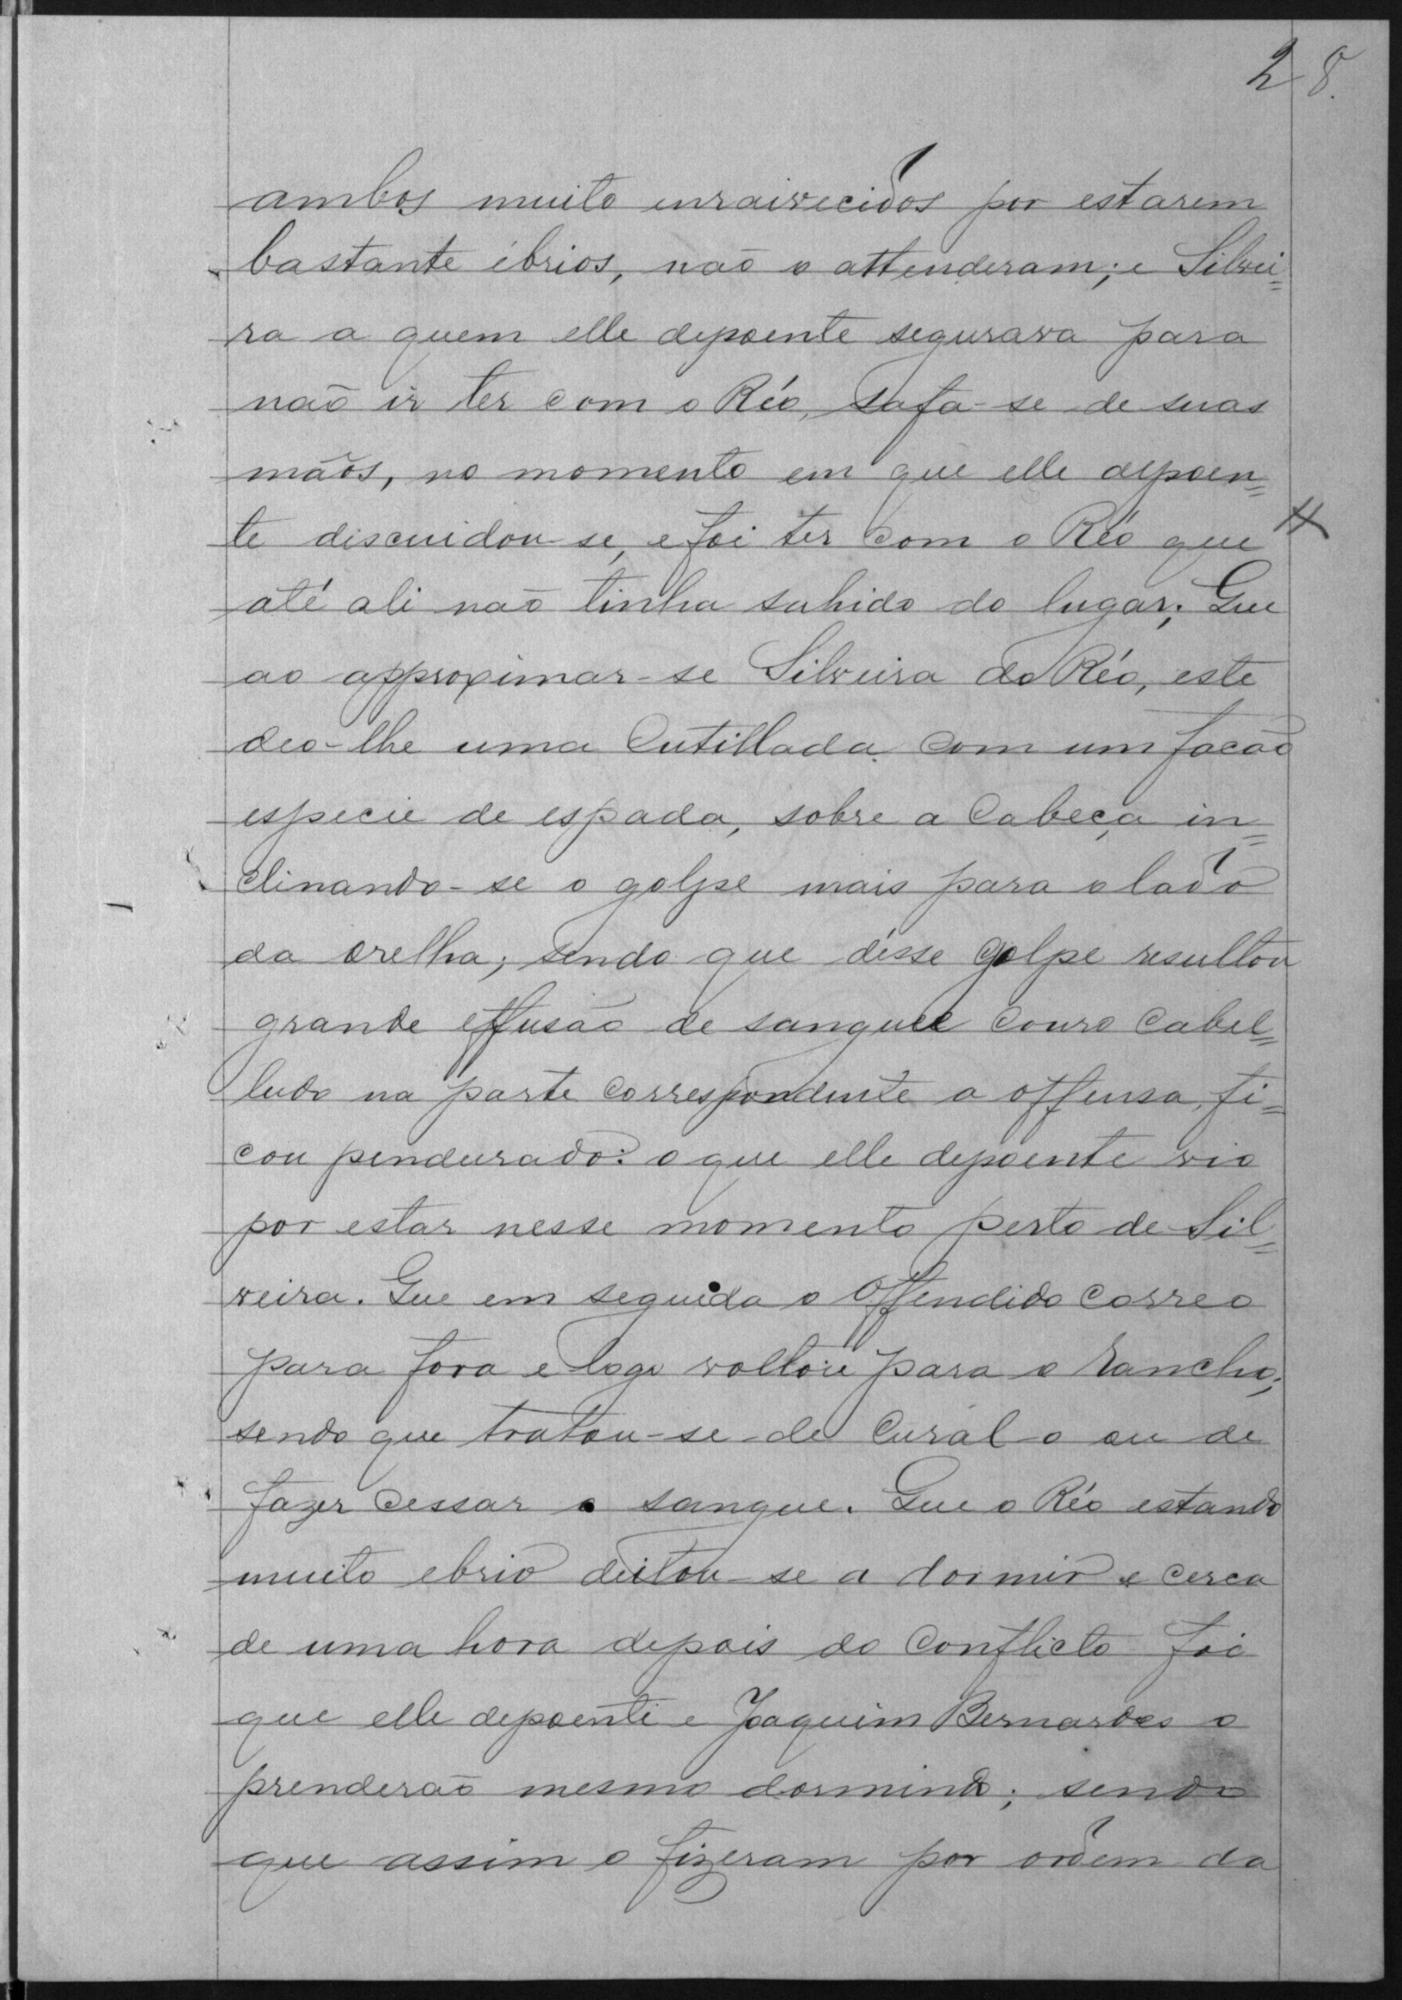 28.
ambos muito enraivecidos por estarem
bastante ébrios, não o attenderam; e Silvei=
ra a quem elle depoente segurava para
não ir ter com o Réo, safa-se de suas
mãos, no momento em que elle depoen=
te discuidou-se, e foi ter com o Réo que
até ali não tinha sahido do lugar; Que
ao approximar-se Silveira do Réo, este
deo-lhe uma Cutillada com um facão
especie de espada, sobre a Cabeça in=
clinando-se o golpe mais para o lado
da orelha; sendo que désse golpe resultou
grande effusão de sangue e Couro Cabel=
ludo na parte correspondente a offensa, fi=
cou pendurado: o que elle depoente vio
por estar nesse momento perto de Sil=
veira. Que em seguida o Offendido correo
para fora e logo voltou para o rancho;
sendo que tratou-se de Cural-o ou de
fazer cessar o sangue. Que o Réo estando
muito ebrio deitou-se a dormir e cerca
de uma hora depois do Conflicto foi
que elle depoente e Joaquim Bernardes o
prenderão mesmo dormindo; sendo
que assim o fizeram por ordem da